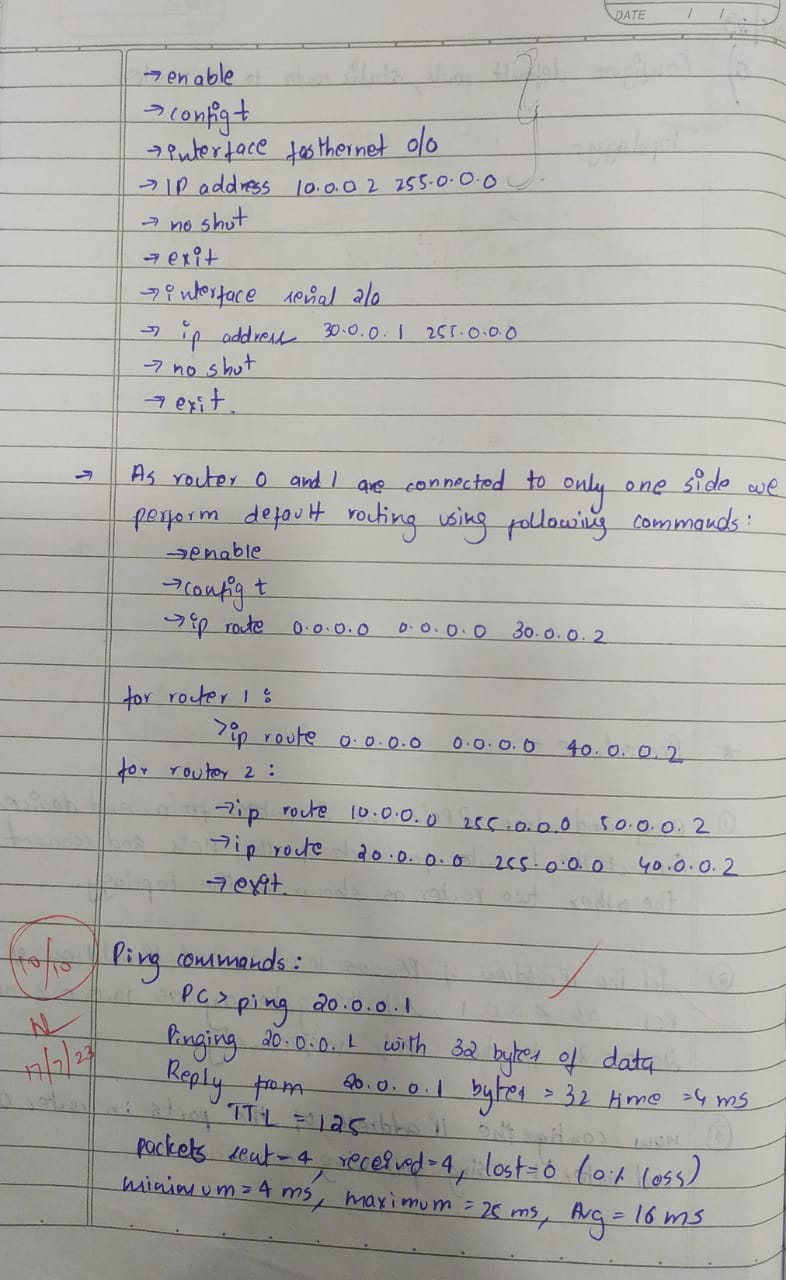 DATE / /
→ enable
→ config t
→ interface fasthernet 0/0
→ IP address 10.0.0 2 255.0.0.0
→ no shut
→ exit
→ interface serial 2/0
→ ip address 30.0.0.1 255.0.0.0
→ no shut
→ exit.
→ As router 0 and 1 are connected to only one side we
perform default routing using following commands:
→ enable
→ config t
→ ip route 0.0.0.0 0.0.0.0 30.0.0.2
for router 1 :
>ip route 0.0.0.0 0.0.0.0 40.0.0.2
for router 2 :
→ ip route 10.0.0.0 255.0.0.0 50.0.0.2
→ ip route 20.0.0.0 255.0.0.0 40.0.0.2
→ exit.
10/10
Ping commands:
PC> ping 20.0.0.1
Pinging 20.0.0.1 with 32 bytes of data
17/7/23
Reply from 20.0.0.1 bytes = 32 time =4 ms
TTL = 125
packets sent=4, received=4, lost=0 (0% loss)
minimum = 4 ms, maximum = 25 ms, Avg = 16 ms